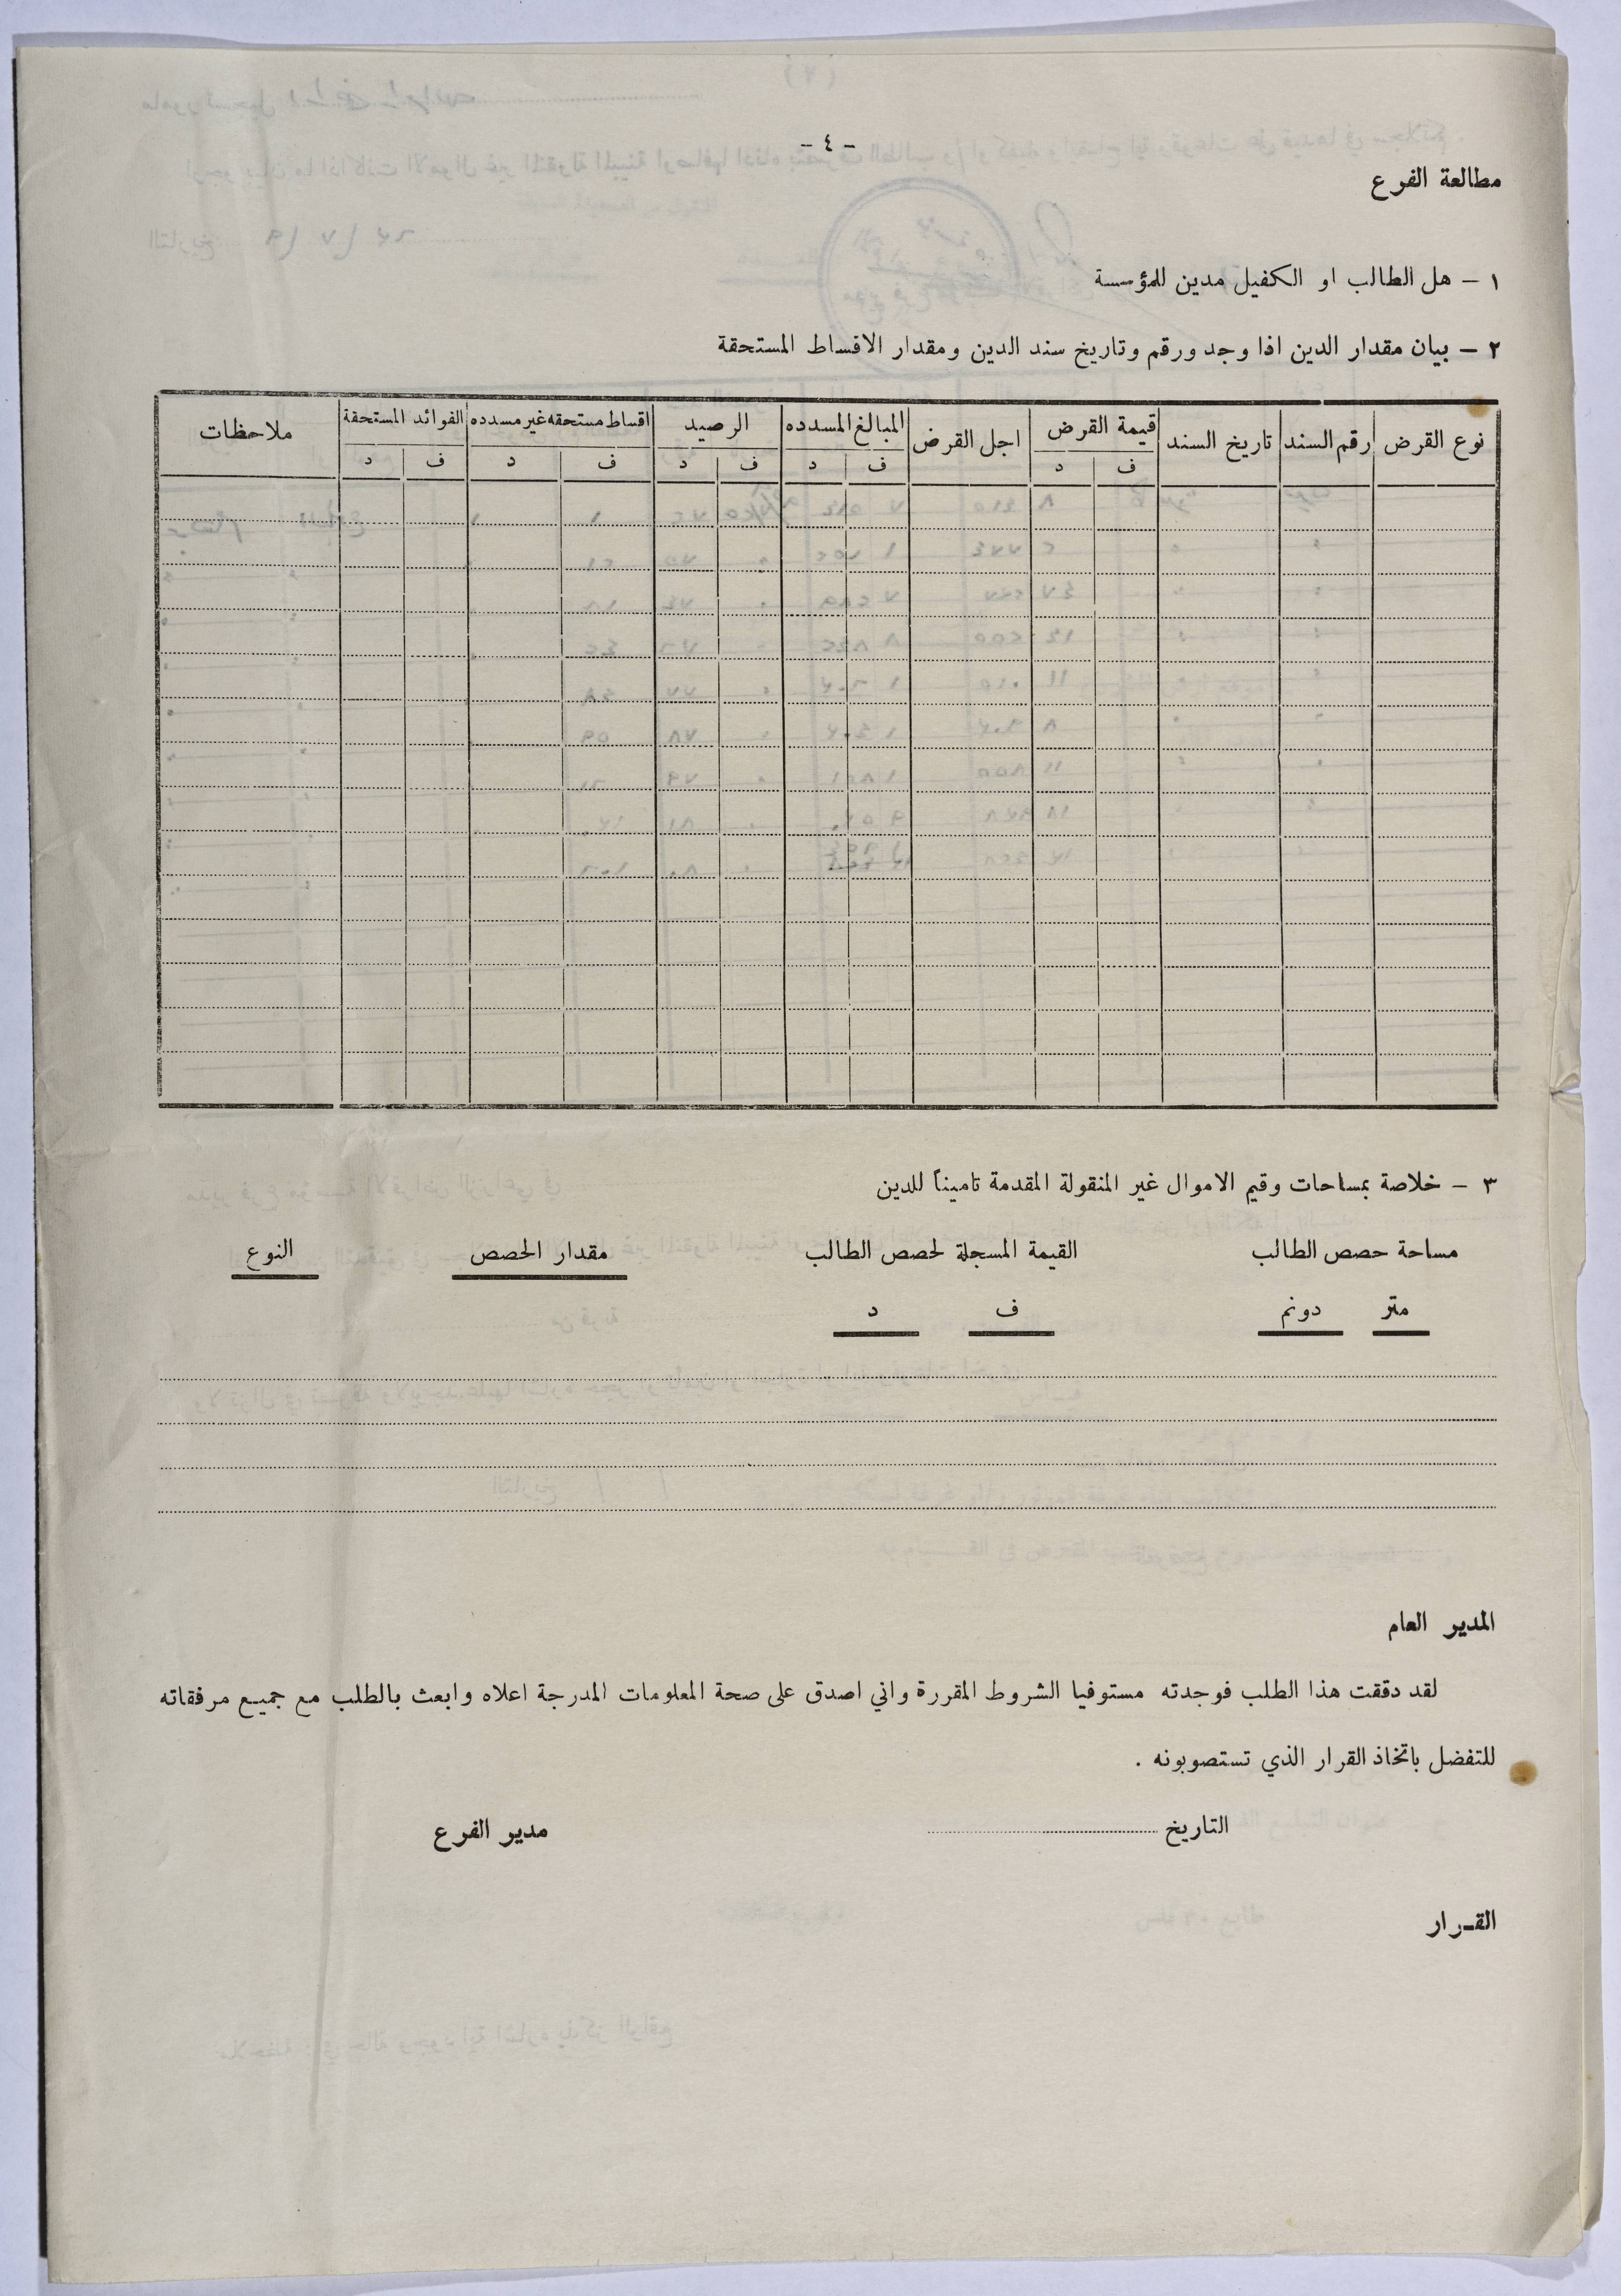 - ٤ -
مطالعة الفرع
١ - هل الطالب او الكفيل مدين للمؤسسة
٢ - بيان مقدار الدين اذا وجد ورقم وتاريخ سند الدين ومقدار الاقساط المستحقة
نوع القرض رقم السند تاريخ السند قيمة القرض اجل القرض المبالغ المسدده الرصيد اقساط مستحقه غير مسدده الفوائد المستحقة ملاحظات
ف د ف د ف د ف د ف د
٣ - خلاصة بمساحات وقيم الاموال غير المنقولة المقدمة تاميناً للدين
مساحة حصص الطالب القيمة المسجلة لحصص الطالب مقدار الحصص النوع
متر دونم ف د
المدير العام
لقد دققت هذا الطلب فوجدته مستوفيا الشروط المقررة واني اصدق على صحة المعلومات المدرجة اعلاه وابعث بالطلب مع جميع مرفقاته
للتفضل باتخاذ القرار الذي تستصوبونه .
التاريخ مدير الفرع
القرار